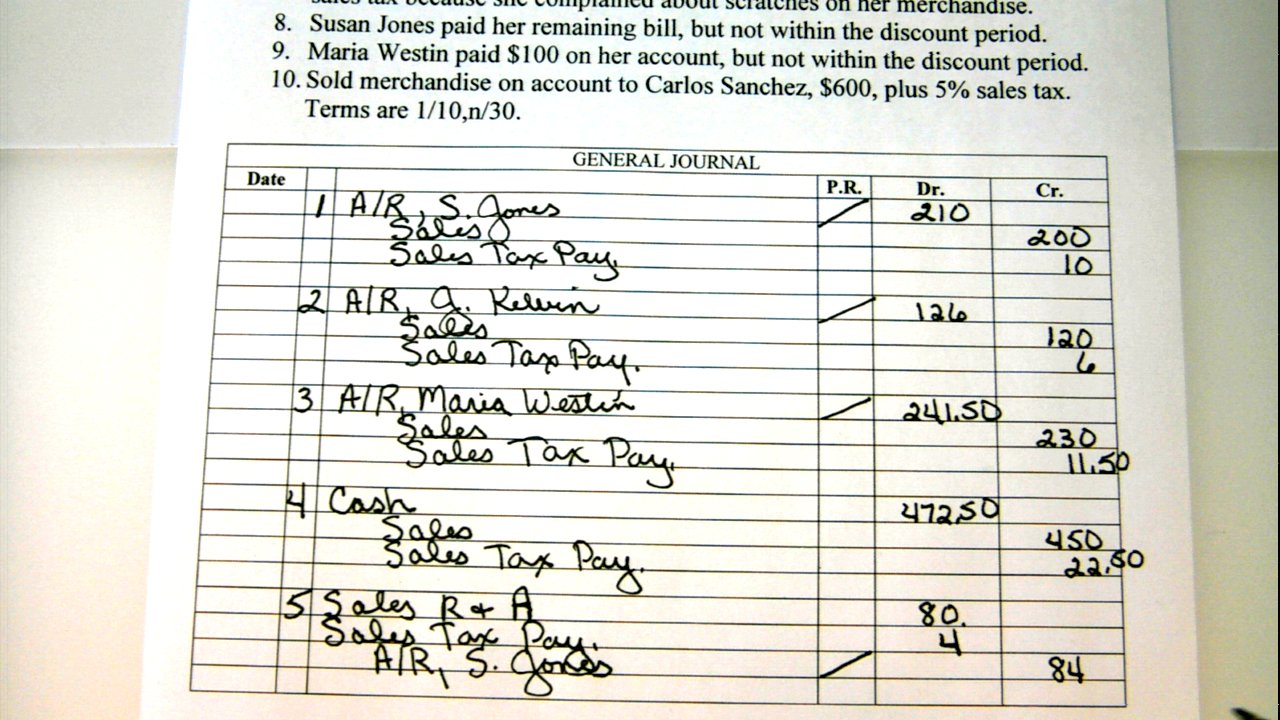 sales tax because she complained about scratches on her merchandise.
8. Susan Jones paid her remaining bill, but not within the discount period.
9. Maria Westin paid $100 on her account, but not within the discount period.
10. Sold merchandise on account to Carlos Sanchez, $600, plus 5% sales tax.
Terms are 1/10,n/30.
GENERAL JOURNAL
Date P.R. Dr. Cr.
1 A/R, S. Jones 210
Sales 200
Sales Tax Pay. 10
2 A/R, A. Kelvin 126
Sales 120
Sales Tax Pay. 6
3 A/R, Maria Westin 241.50
Sales 230
Sales Tax Pay. 11.50
4 Cash 472.50
Sales 450
Sales Tax Pay. 22.50
5 Sales R + A 80.
Sales Tax Pay. 4
A/R, S. Jones 84